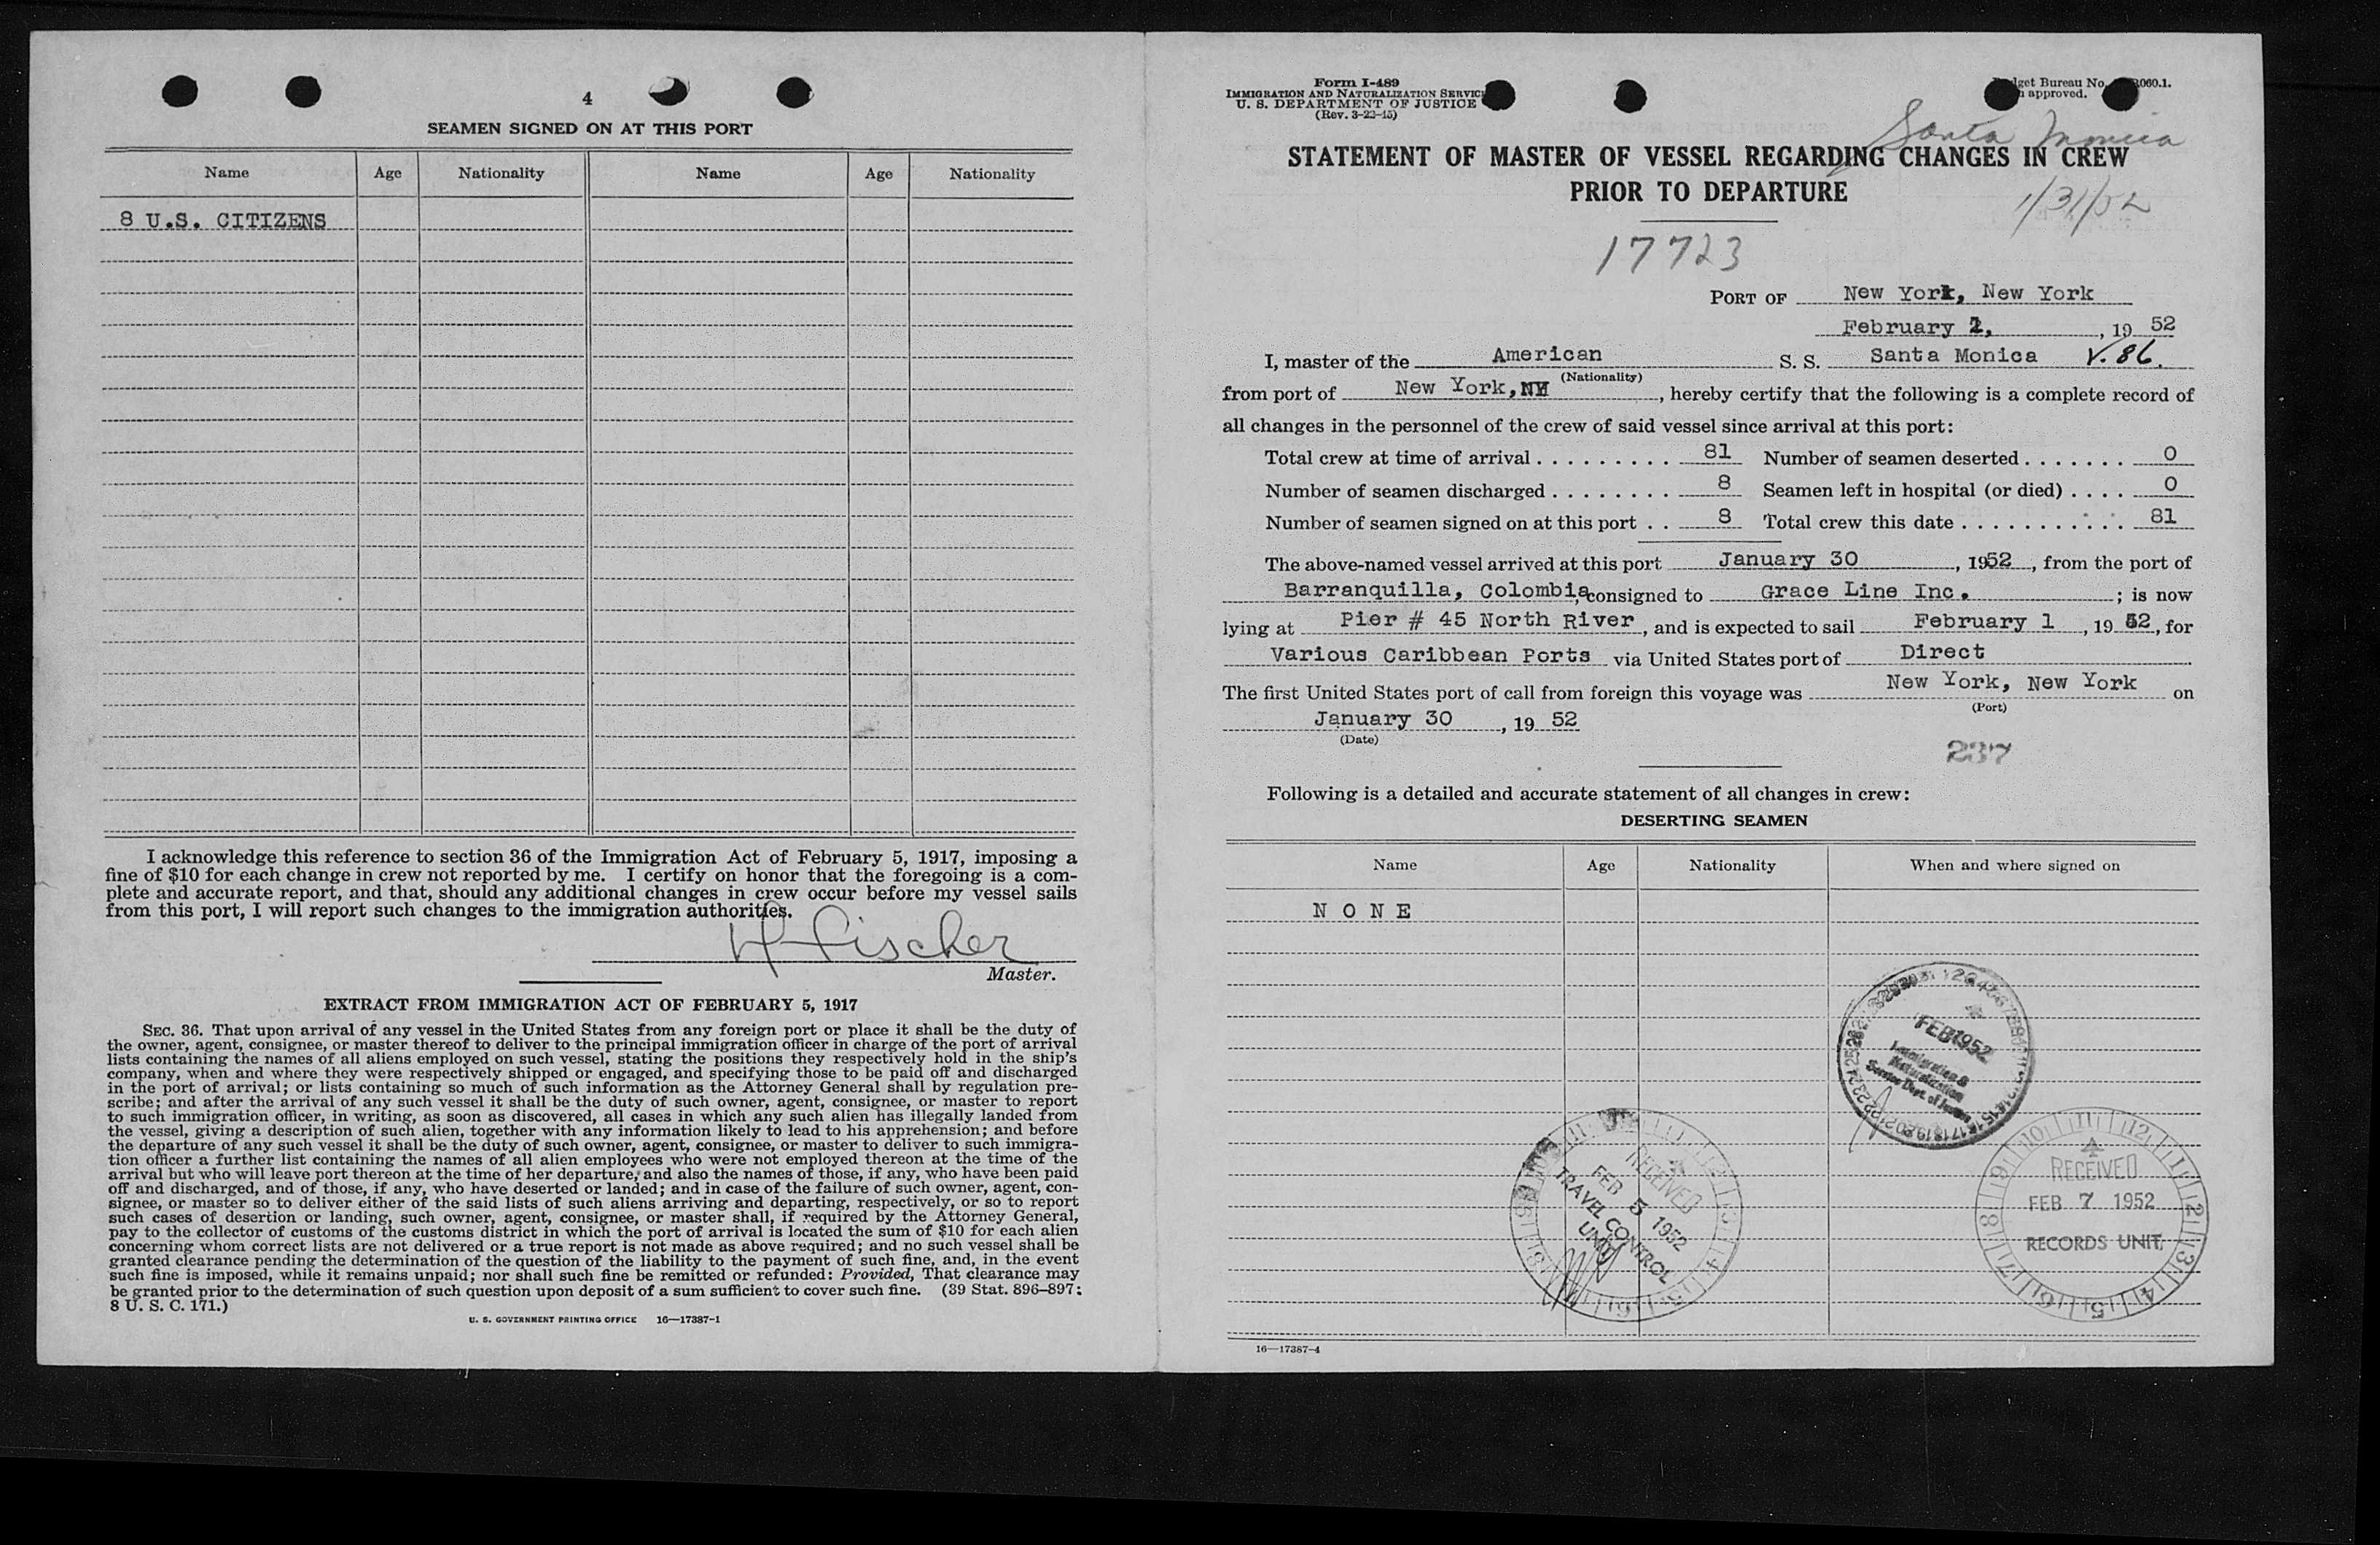 4
SEAMEN SIGNED ON AT THIS PORT
Name Age Nationality Name Age Nationality
8 U.S. CITIZENS
I acknowledge this reference to section 36 of the Immigration Act of February 5, 1917, imposing a
fine of $10 for each change in crew not reported by me. I certify on honor that the foregoing is a com-
plete and accurate report, and that, should any additional changes in crew occur before my vessel sails
from this port, I will report such changes to the immigration authorities.
H Fischer
Master.
EXTRACT FROM IMMIGRATION ACT OF FEBRUARY 5, 1917
SEC. 36. That upon arrival of any vessel in the United States from any foreign port or place it shall be the duty of
the owner, agent, consignee, or master thereof to deliver to the principal immigration officer in charge of the port of arrival
lists containing the names of all aliens employed on such vessel, stating the positions they respectively hold in the ship's
company, when and where they were respectively shipped or engaged, and specifying those to be paid off and discharged
in the port of arrival; or lists containing so much of such information as the Attorney General shall by regulation pre-
scribe; and after the arrival of any such vessel it shall be the duty of such owner, agent, consignee, or master to report
to such immigration officer, in writing, as soon as discovered, all cases in which any such alien has illegally landed from
the vessel, giving a description of such alien, together with any information likely to lead to his apprehension; and before
the departure of any such vessel it shall be the duty of such owner, agent, consignee, or master to deliver to such immigra-
tion officer a further list containing the names of all alien employees who were not employed thereon at the time of the
arrival but who will leave port thereon at the time of her departure, and also the names of those, if any, who have been paid
off and discharged, and of those, if any, who have deserted or landed; and in case of the failure of such owner, agent, con-
signee, or master so to deliver either of the said lists of such aliens arriving and departing, respectively, or so to report
such cases of desertion or landing, such owner, agent, consignee, or master shall, if required by the Attorney General,
pay to the collector of customs of the customs district in which the port of arrival is located the sum of $10 for each alien
concerning whom correct lists are not delivered or a true report is not made as above required; and no such vessel shall be
granted clearance pending the determination of the question of the liability to the payment of such fine, and, in the event
such fine is imposed, while it remains unpaid; nor shall such fine be remitted or refunded: Provided, That clearance may
be granted prior to the determination of such question upon deposit of a sum sufficient to cover such fine. (39 Stat. 896–897;
8 U. S. C. 171.)
U. S. GOVERNMENT PRINTING OFFICE 16—17387-1
Form I-489
IMMIGRATION AND NATURALIZATION SERVIC
U. S. DEPARTMENT OF JUSTICE
(Rev. 3-22-45)
get Bureau No. 060.1.
approved.
Santa Monica
STATEMENT OF MASTER OF VESSEL REGARDING CHANGES IN CREW
PRIOR TO DEPARTURE
1/31/52
17723
PORT OF New York, New York
February 1, , 19 52
I, master of the American S. S. Santa Monica V. 86.
(Nationality)
from port of New York, NY , hereby certify that the following is a complete record of
all changes in the personnel of the crew of said vessel since arrival at this port:
Total crew at time of arrival . . . . . . . . . . 81 Number of seamen deserted . . . . . . . 0
Number of seamen discharged . . . . . . . . 8 Seamen left in hospital (or died) . . . . 0
Number of seamen signed on at this port . . 8 Total crew this date . . . . . . . . . . . . 81
The above-named vessel arrived at this port January 30 , 1952 , from the port of
Barranquilla, Colombia, consigned to Grace Line Inc. ; is now
lying at Pier # 45 North River , and is expected to sail February 1 , 19 52, for
Various Caribbean Ports via United States port of Direct
The first United States port of call from foreign this voyage was New York, New York on
(Port)
January 30 , 19 52
(Date)
237
Following is a detailed and accurate statement of all changes in crew:
DESERTING SEAMEN
Name Age Nationality When and where signed on
N O N E
FEB 1952
Immigration &
Naturalization
Service Dept. of Justice
RECEIVED
FEB 5 1952
TRAVEL CONTROL
UNIT
RECEIVED
FEB 7 1952
RECORDS UNIT
16—17387-4